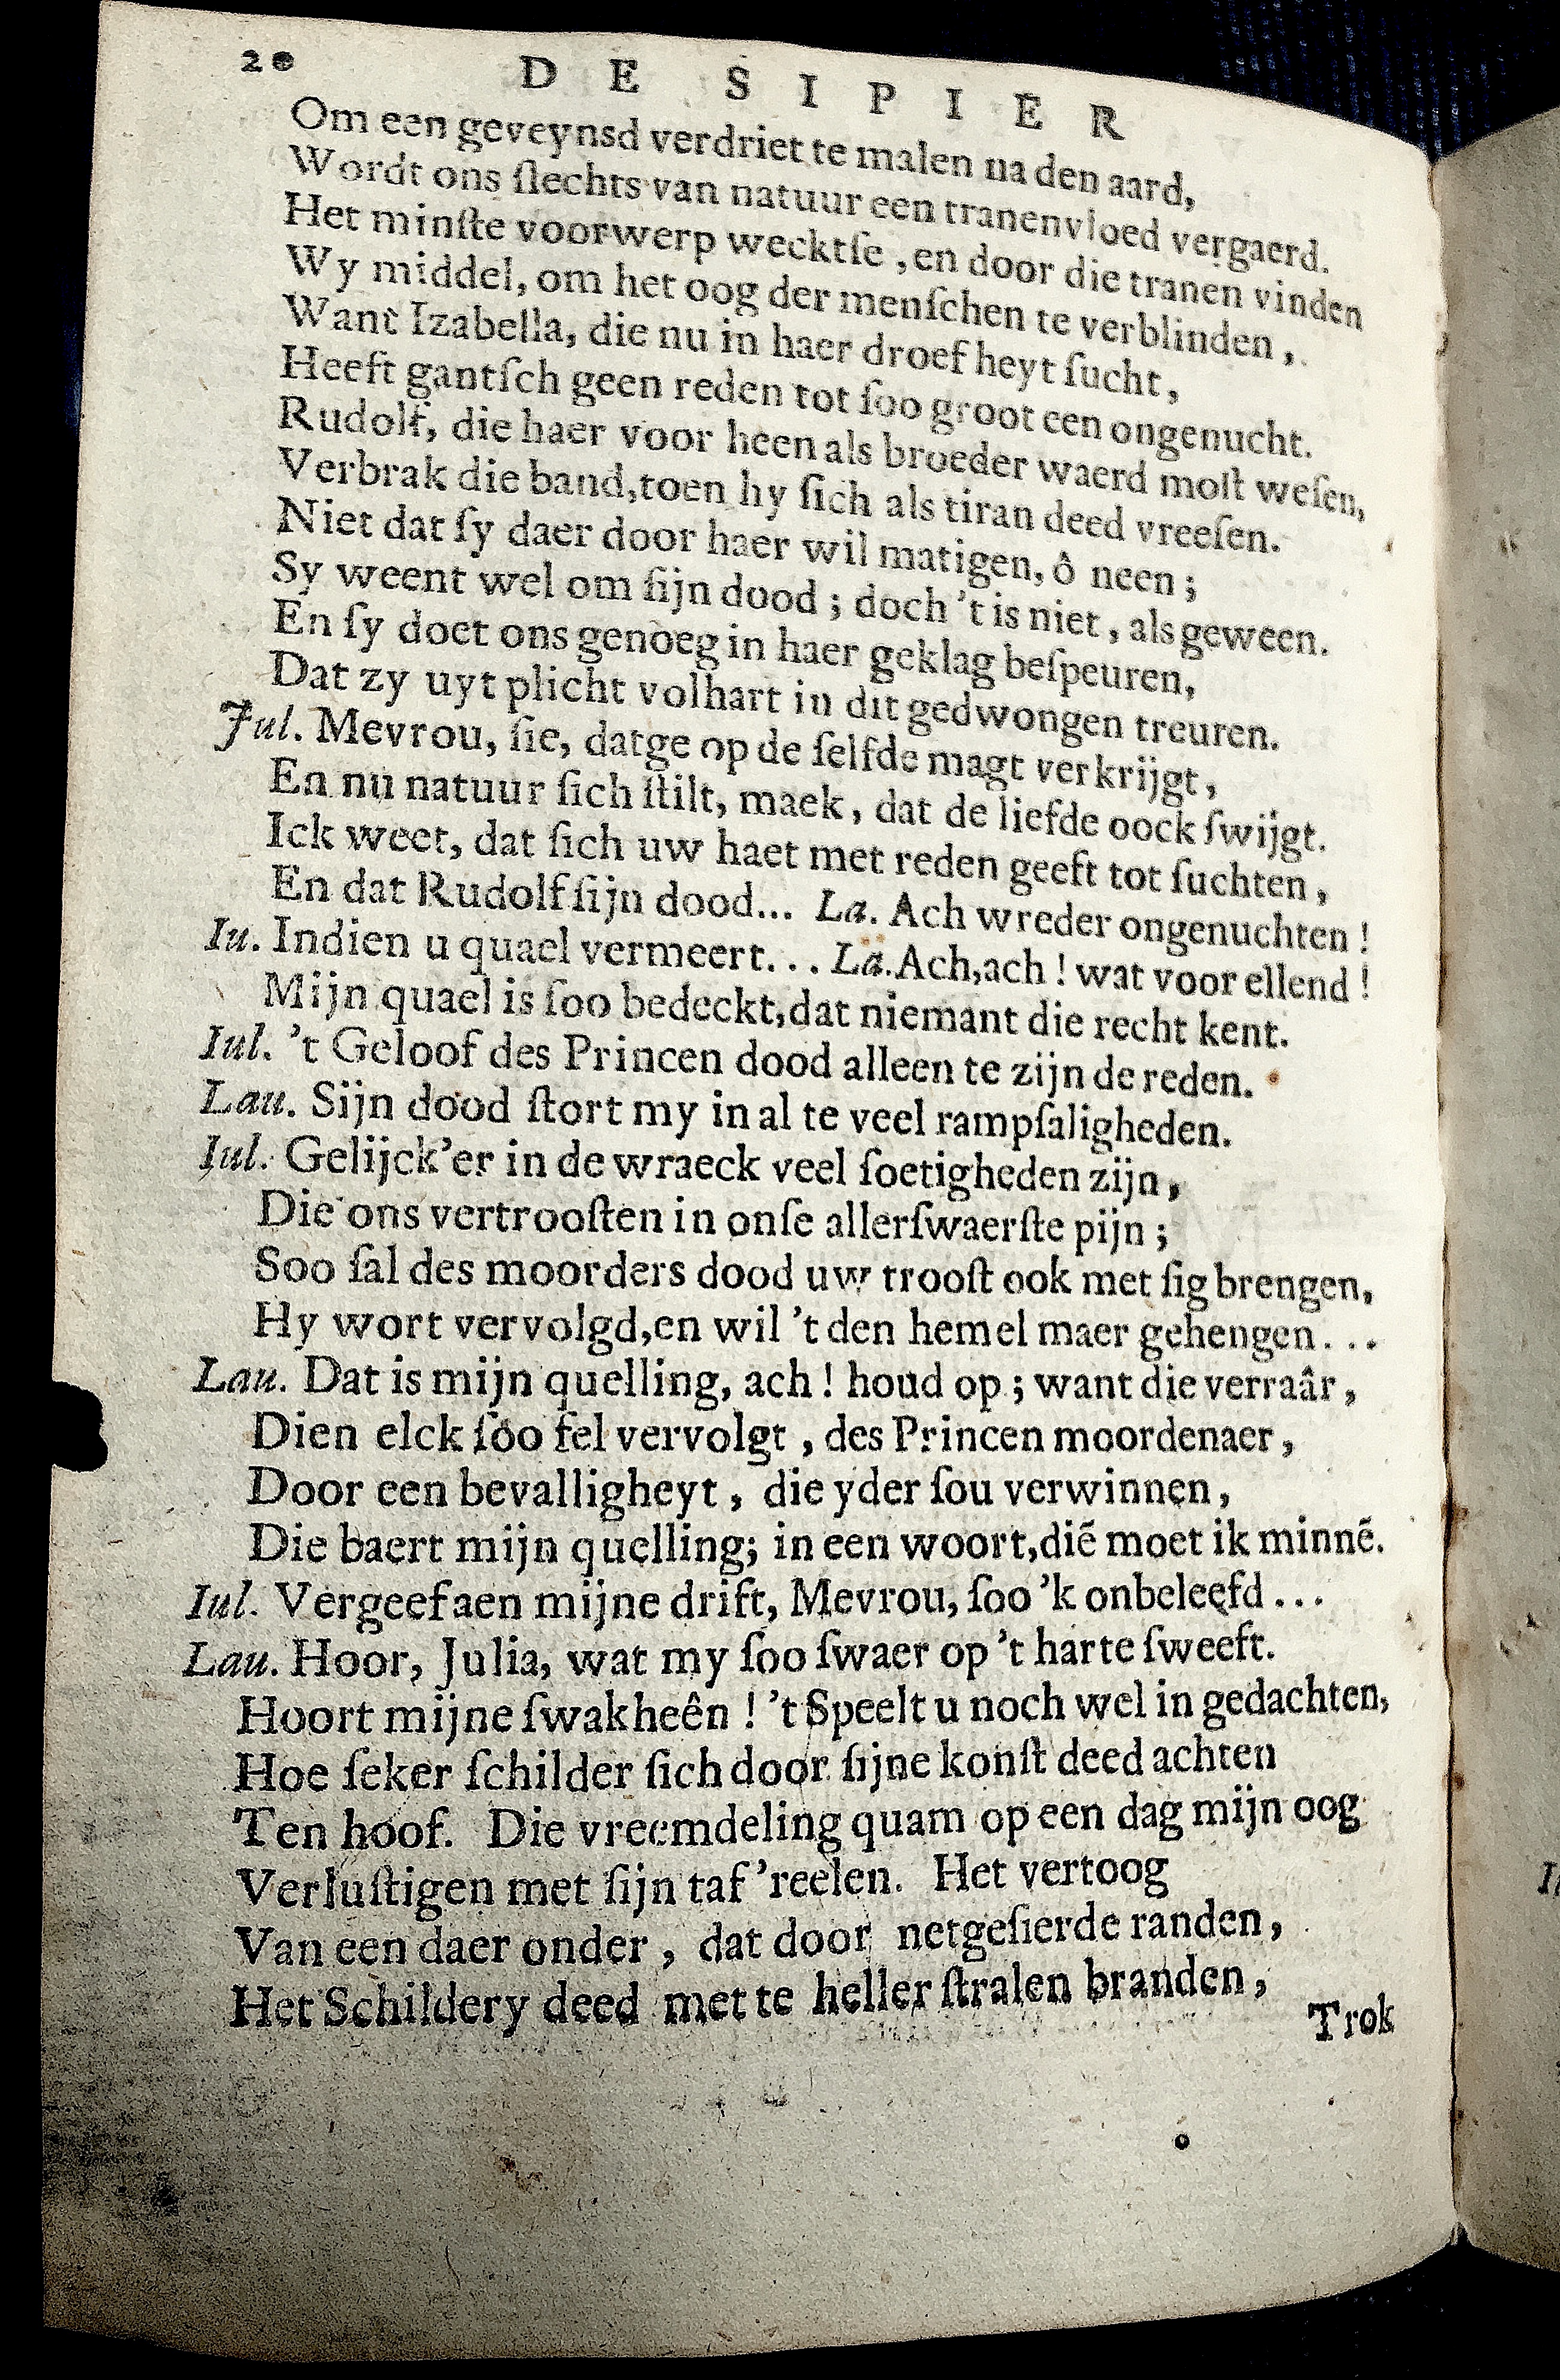 20 DE SIPIER
Om een geveynsd verdriet te malen na den aard,
Wordt ons ſlechts van natuur een tranenvloed vergaerd.
Het minſte voorwerp wecktſe, en door die tranen vinden
Wy middel, om het oog der menſchen te verblinden,
Want Izabella, die nu in haer droefheyt ſucht,
Heeft gantſch geen reden tot ſoo groot een ongenucht.
Rudolf, die haer voor heen als broeder waerd moſt weſen,
Verbrak die band, toen hy ſich als tiran deed vreeſen.
Niet dat ſy daer door haer wil matigen, ô neen;
Sy weent wel om ſijn dood; doch 't is niet, als geween.
En ſy doet ons genoeg in haer geklag beſpeuren,
Dat zy uyt plicht volhart in dit gedwongen treuren.
Jul. Mevrou, ſie, datge op de ſelfde magt verkrijgt,
En nu natuur ſich ſtilt, maek, dat de liefde oock ſwijgt.
Ick weet, dat ſich uw haet met reden geeft tot ſuchten,
En dat Rudolf ſijn dood... La. Ach wreder ongenuchten!
Iu. Indien u quael vermeert... La. Ach, ach! wat voor ellend!
Mijn quael is ſoo bedeckt, dat niemant die recht kent.
Iul. 't Geloof des Princen dood alleen te zijn de reden.
Lau. Sijn dood ſtort my in al te veel rampſaligheden.
Iul. Gelijck'er in de wraeck veel ſoetigheden zijn,
Die ons vertrooſten in onſe allerſwaerſte pijn;
Soo ſal des moorders dood uw trooſt ook met ſig brengen,
Hy wort vervolgd, en wil 't den hemel maer gehengen...
Lau. Dat is mijn quelling, ach! houd op; want die verraâr,
Dien elck ſoo fel vervolgt, des Princen moordenaer,
Door een bevalligheyt, die yder ſou verwinnen,
Die baert mijn quelling; in een woort, diē moet ik minnē.
Iul. Vergeef aen mijne drift, Mevrou, ſoo 'k onbeleefd...
Lau. Hoor, Julia, wat my ſoo ſwaer op 't harte ſweeft.
Hoort mijne ſwakheên! 't Speelt u noch wel in gedachten,
Hoe ſeker ſchilder ſich door ſijne konſt deed achten
Ten hoof. Die vreemdeling quam op een dag mijn oog
Verluſtigen met ſijn taf'reelen. Het vertoog
Van een daer onder, dat door netgeſierde randen,
Het Schildery deed met te heller ſtralen branden,
Trok